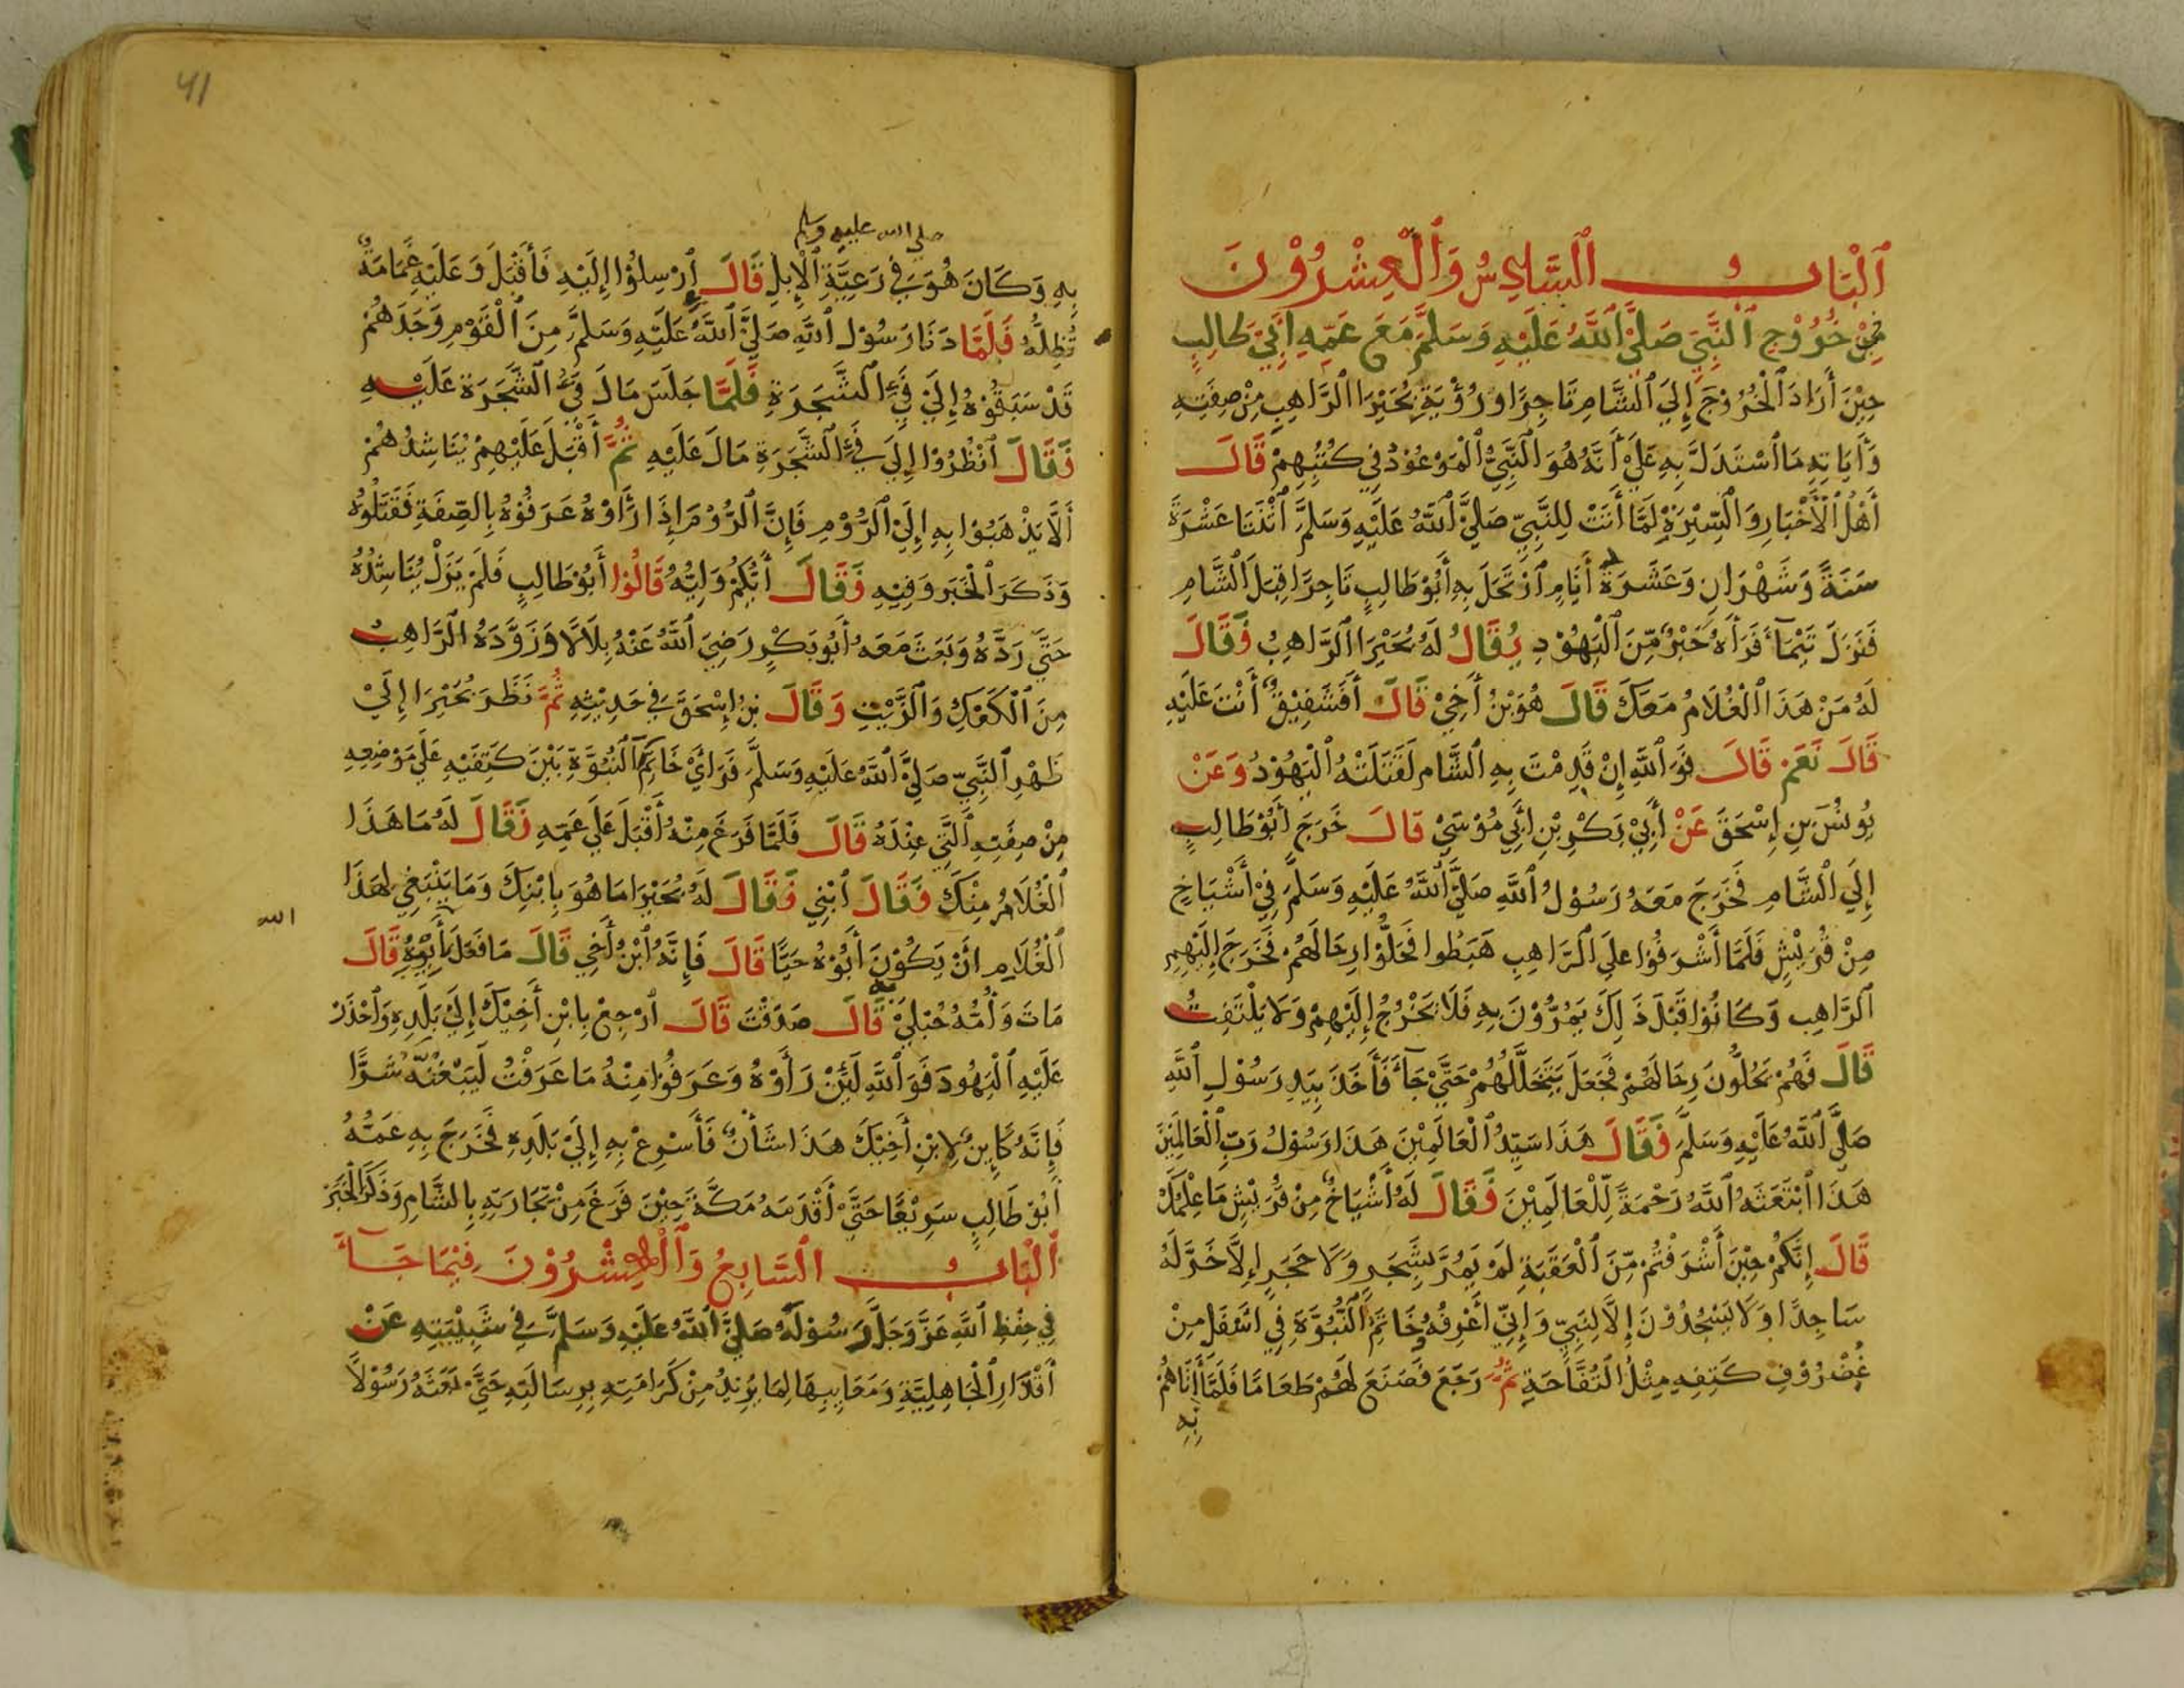 اَلْبَابُ السَّادِسُ وَالْعِشْرُوْنَ
فِيْ خُرُوْجِ النَّبِيِّ صَلَّيَ اللَّهُ عَلَيْهِ وَسَلَّمَ مَعَ عَمِّهِ أَبِيْ طَالِبٍ
حِيْنَ أَرَادَ الْخُرُوْجَ إِلَيَ الشَّامِ تَاجِرًا وَرُؤْيَةِ بُحَيْرَا الرَّاهِبِ مِنْ صِفَتِهِ
وَأَيَاتِهِ مَا اسْتَدَلَّ بِهِ عَلَيَ أَنَّهُ هُوَ النَّبِيُّ الْمَوْعُوْدُ فِي كُتُبِهِمْ قَالَ
أَهْلُ الْأَخْبَارِ وَالسِّيْرَةِ لَمَّا أَتَتْ لِلنَّبِيِّ صَلَّيَ اللَّهُ عَلَيْهِ وَسَلَّمَ اثْنَتَا عَشْرَةَ
سَنَةً وَشَهْرَانِ وَعَشَرَةُ أَيَّامٍ ارْتَحَلَ بِهِ أَبُوْ طَالِبٍ تَاجِرًا قِبَلَ الشَّامِ
فَنَزَلَ تَيْمَآءَ فَرَأَهُ حَبْرٌ مِّنَ الْيَهُوْدِ يُقَالُ لَهُ بُحَيْرَا الرَّاهِبُ فَقَالَ
لَهُ مَنْ هَذَا الْغُلَامُ مَعَكَ قَالَ هُوَ بْنُ أَخِيْ قَالَ أَفَشَفِيْقٌ أَنْتَ عَلَيْهِ
قَالَ نَعَمْ قَالَ فَوَ اللَّهِ إِنْ قَدِمْتَ بِهِ الشَّامَ لَقَتَلَتْهُ الْيَهُوْدُ وَعَنْ
يُونُسَ بْنِ إِسْحَقَ عَنْ أَبِيْ بَكْرِ بْنِ أَبِي مُوْسَيْ قَالَ خَرَجَ أَبُوْ طَالِبٍ
إِلَيَ الشَّامِ فَخَرَجَ مَعَهُ رَسُوْلُ اللَّهِ صَلَّيَ اللَّهُ عَلَيْهِ وَسَلَّمَ فِيْ أَشْيَاخٍ
مِنْ قُرَيْشٍ فَلَمَّا أَشْرَفُوْا عَلَي الرَّاهِبِ هَبَطُوا فَحَلُّوْا رِحَالَهُمْ فَخَرَجَ إِلَيْهِمِ
الرَّاهِبِ وَكَانُوْا قَبْلَ ذَلِكَ يَمُرُّوْنَ بِهِ فَلَا يَخْرُجُ إِلَيْهِمْ وَلَا يَلْتَفِتُ
قَالَ فَهُمْ يَحُلُّونَ رِحَالَهُمْ فَجَعَلَ يَتَخَلَّلُهُمْ حَتَّيْ جَآءَ فَأَخَذَ بِيَدِ رَسُوْلِ اللَّهِ
صَلَّيَ اللَّهُ عَلَيْهِ وَسَلَّمَ فَقَالَ هَذَا سَيِّدُ الْعَالَمِيْنَ هَذَا رَسُوْلُ رَبِّ الْعَالَمِيْنَ
هَذَا ابْتَعَثَهُ اللَّهُ رَحْمَةً لِّلْعَالَمِيْنَ فَقَالَ لَهُ أَشْيَاخٌ مِنْ قُرَيْشٍ مَا عِلْمُكَ
قَالَ إِنَّكُمْ حِيْنَ أَشْرَفْتُمْ مِّنَ الْعَقَبَةِ لَمْ يَمُرَّ بِشَجَرٍ وَلَا حَجَرٍ إِلَّا خَرَّ لَهُ
سَاجِدًا وَلَا يَسْجُدُوْنَ إِلَّا لِنَبِيٍّ وَإِنِّي أَعْرِفُهُ خَاتَمُ النُّبُوَّةِ فِي اسْفَلَ مِنْ
غُضْرُوْفِ كَتِفِهِ مِثْلُ التُّفَّاحَةِ ثُمَّ رَجَعَ فَصَنَعَ لَهُمْ طَعَامًا فَلَمَّا أَتَاهُمْ
بِهِ
41
صلي الله عليه وسلم
بِهِ وَكَانَ هُوَ فِي رَعِيَّةِ الْإِبِلِ قَالَ ارْسِلُوْا إِلَيْهِ فَأَقْبَلَ وَعَلَيْهِ غَمَامَةٌ
تُظِلُّهُ فَلَمَّا دَنَا رَسُوْلُ اللَّهِ صَلَّيَ اللَّهُ عَلَيْهِ وَسَلَّمَ مِنَ الْقَوْمِ وَجَدَهُمْ
قَدْ سَبَقُوْهُ إِلَيْ فَيْءِ الشَّجَرَةِ فَلَمَّا جَلَسَ مَالَ فَيْءُ الشَّجَرَةِ عَلَيْهِ
فَقَالَ انْظُرُوْا إِلَيَ فَيْءِ الشَّجَرَةِ مَالَ عَلَيْهِ ثُمَّ أَقْبَلَ عَلَيْهِمْ يُنَاشِدُهُمْ
أَلَّا يَذْهَبُوْا بِهِ إِلَيَ الرُّوْمِ فَإِنَّ الرُّوْمَ إِذَا رَأَوْهُ عَرَفُوْهُ بِالصِّفَةِ فَقَتَلُوْهُ
وَذَكَرَ الْخَبَرَ وَفِيْهِ فَقَالَ أَيُّكُمْ وَلِيُّهُ قَالُوْا أَبُوْ طَالِبٍ فَلَمْ يَزَلْ يُنَاشِدُهُ
حَتَّيَ رَدَّهُ وَبَعَثَ مَعَهُ أَبُوبَكْرٍ رَضِيَ اللَّهُ عَنْهُ بِلَالًا وَزَوَّدَهُ الرَّاهِبُ
مِنَ الْكَعْكِ وَالزَّيْتِ وَقَالَ بْنُ إِسْحَقَ فِي حَدِيْثِهِ ثُمَّ نَظَرَ بُحَيْرَا إِلَيْ
ظَهْرِ النَّبِيِّ صَلَّيَ اللَّهُ عَلَيْهِ وَسَلَّمَ فَرَايَ خَاتَمَ النُّبُوَّةِ بَيْنَ كَتِفَيْهِ عَلَي مَوْضِعِهِ
مِنْ صِفَتِهِ الَّتِي عِنْدَهُ قَالَ فَلَمَّا فَرَغَ مِنْهُ أَقْبَلَ عَلَي عَمِّهِ فَقَالَ لَهُ مَا هَذَا
الْغُلَامُ مِنْكَ فَقَالَ ابْنِي فَقَالَ لَهُ بُحَيْرَا مَا هُوَ بِابْنِكَ وَمَا يَنْبَغِي لِهَذَا
الله
الْغُلَامِ انْ يَكُوْنَ أَبُوْهُ حَيًّا قَالَ فَإِنَّهُ ابْنُ أَخِي قَالَ مَا فَعَلَ أَبُوْهُ قَالَ
مَاتَ وَأُمُّهُ حُبْلَيْ قَالَ صَدَقْتَ قَالَ ارْجِعْ بِابْنِ أَخِيْكَ إِلَيَ بَلَدِهِ وَاحْذَرْ
عَلَيْهِ الْيَهُودَ فَوَ اللَّهِ لَئِنْ رَأَوْهُ وَعَرَفُوْا مِنْهُ مَا عَرَفْتُ لَيَبْغُنَّهُ شَرًّا
فَإِنَّهُ كَايِنٌ لِابْنِ أَخِيْكَ هَذَا شَأْنٌ فَأَسْرِعْ بِهِ إِلَيَ بَلَدِهِ فَخَرَجَ بِهِ عَمُّهُ
أَبُوْ طَالِبٍ سَرِيْعًا حَتَّيَ أَقْدَمَهُ مَكَّةَ حِيْنَ فَرَغَ مِنْ تِجَارَتِهِ بِالشَّامِ وَذَكَرَ الْخَبَرَ
اَلْبَابُ السَّابِعُ وَالْعِشْرُوْنَ فِيْمَا جَآءَ
فِي حِفْظِ اللَّهِ عَزَّ وَجَلَّ رَسُوْلَهُ صَلَّيَ اللَّهُ عَلَيْهِ وَسَلَّمَ فِي شَبِيْبَتِهِ عَنْ
أَقْذَارِ الْجَاهِلِيَّةِ وَمَعَايِبِهَا لِمَا يُرِيْدُ مِنْ كَرَامَتِهِ بِرِسَالَتِهِ حَتَّيَ بَعَثَهُ رَسُوْلًا